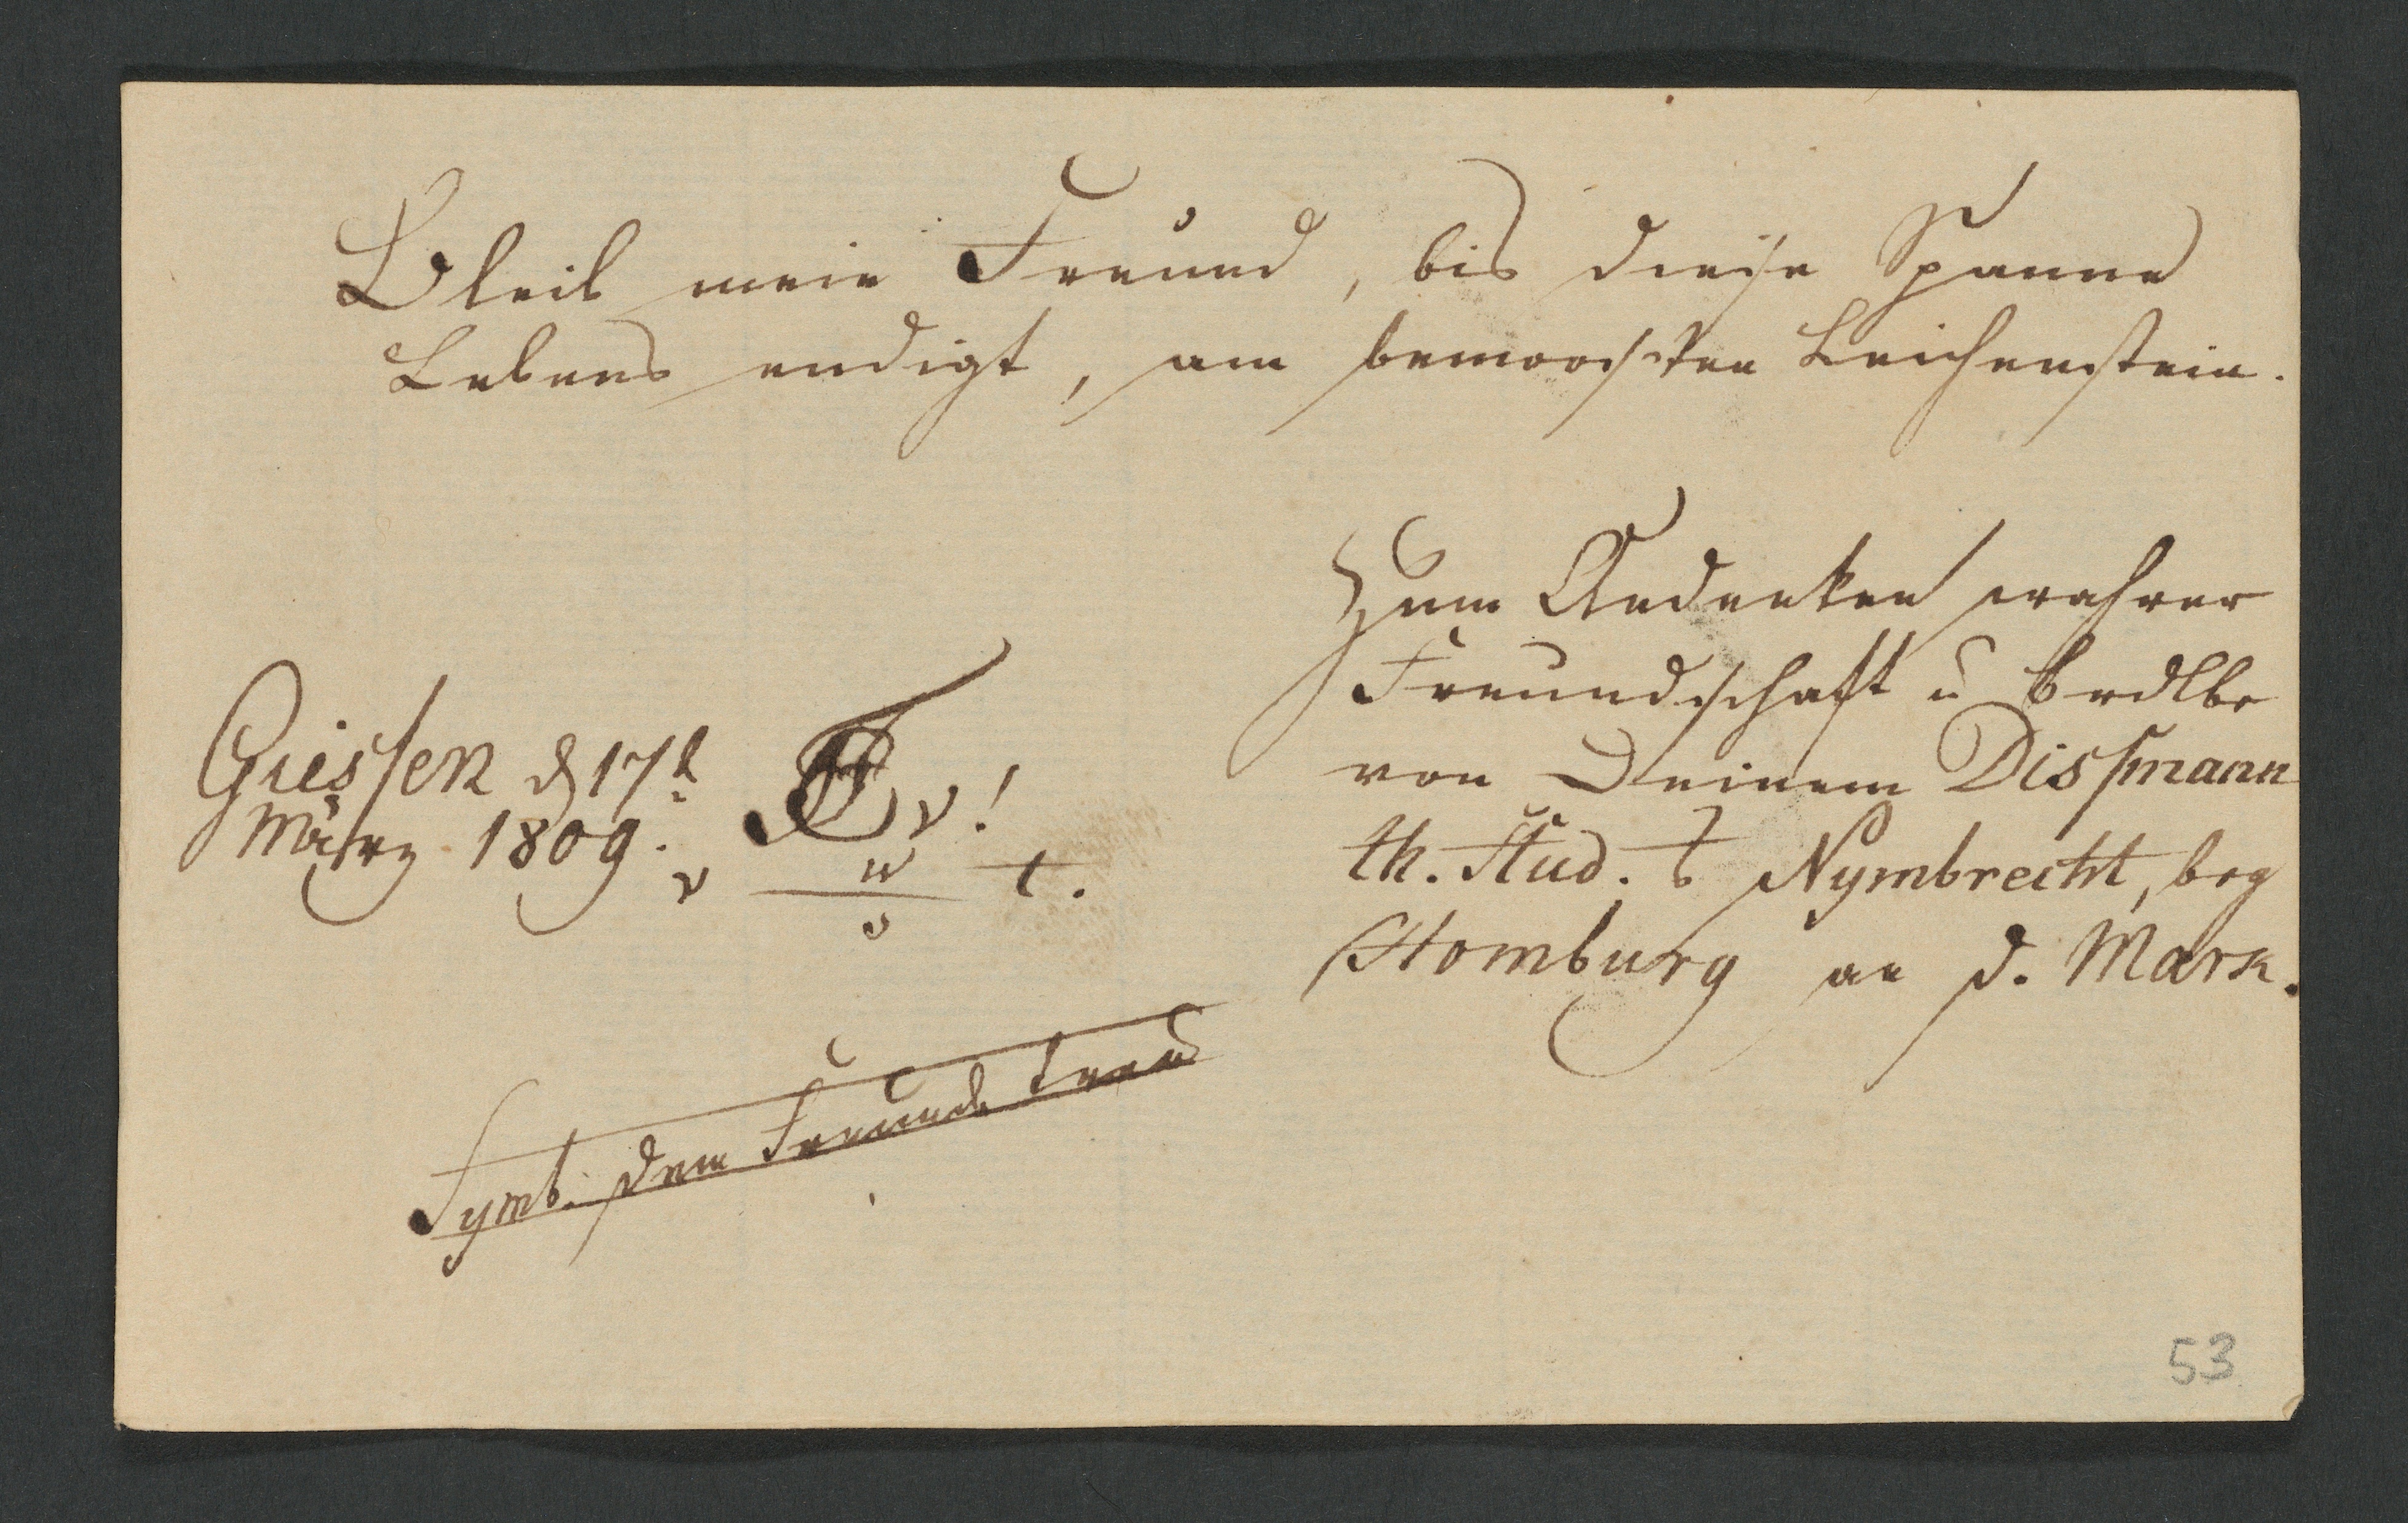 Bleib mein Freund, bis diese Spanne
Lebens endigt, am bemoosten Leichenstein.
Zum Andenken wahrer
Freundschaft u
von Deinem Dissmann
th. Stud. Nymbrecht, bey
Homburg an d. Mark.
Giessen d 17t
März 1809.
v!
v w t.
o
Symb. dem Freunde treu
53